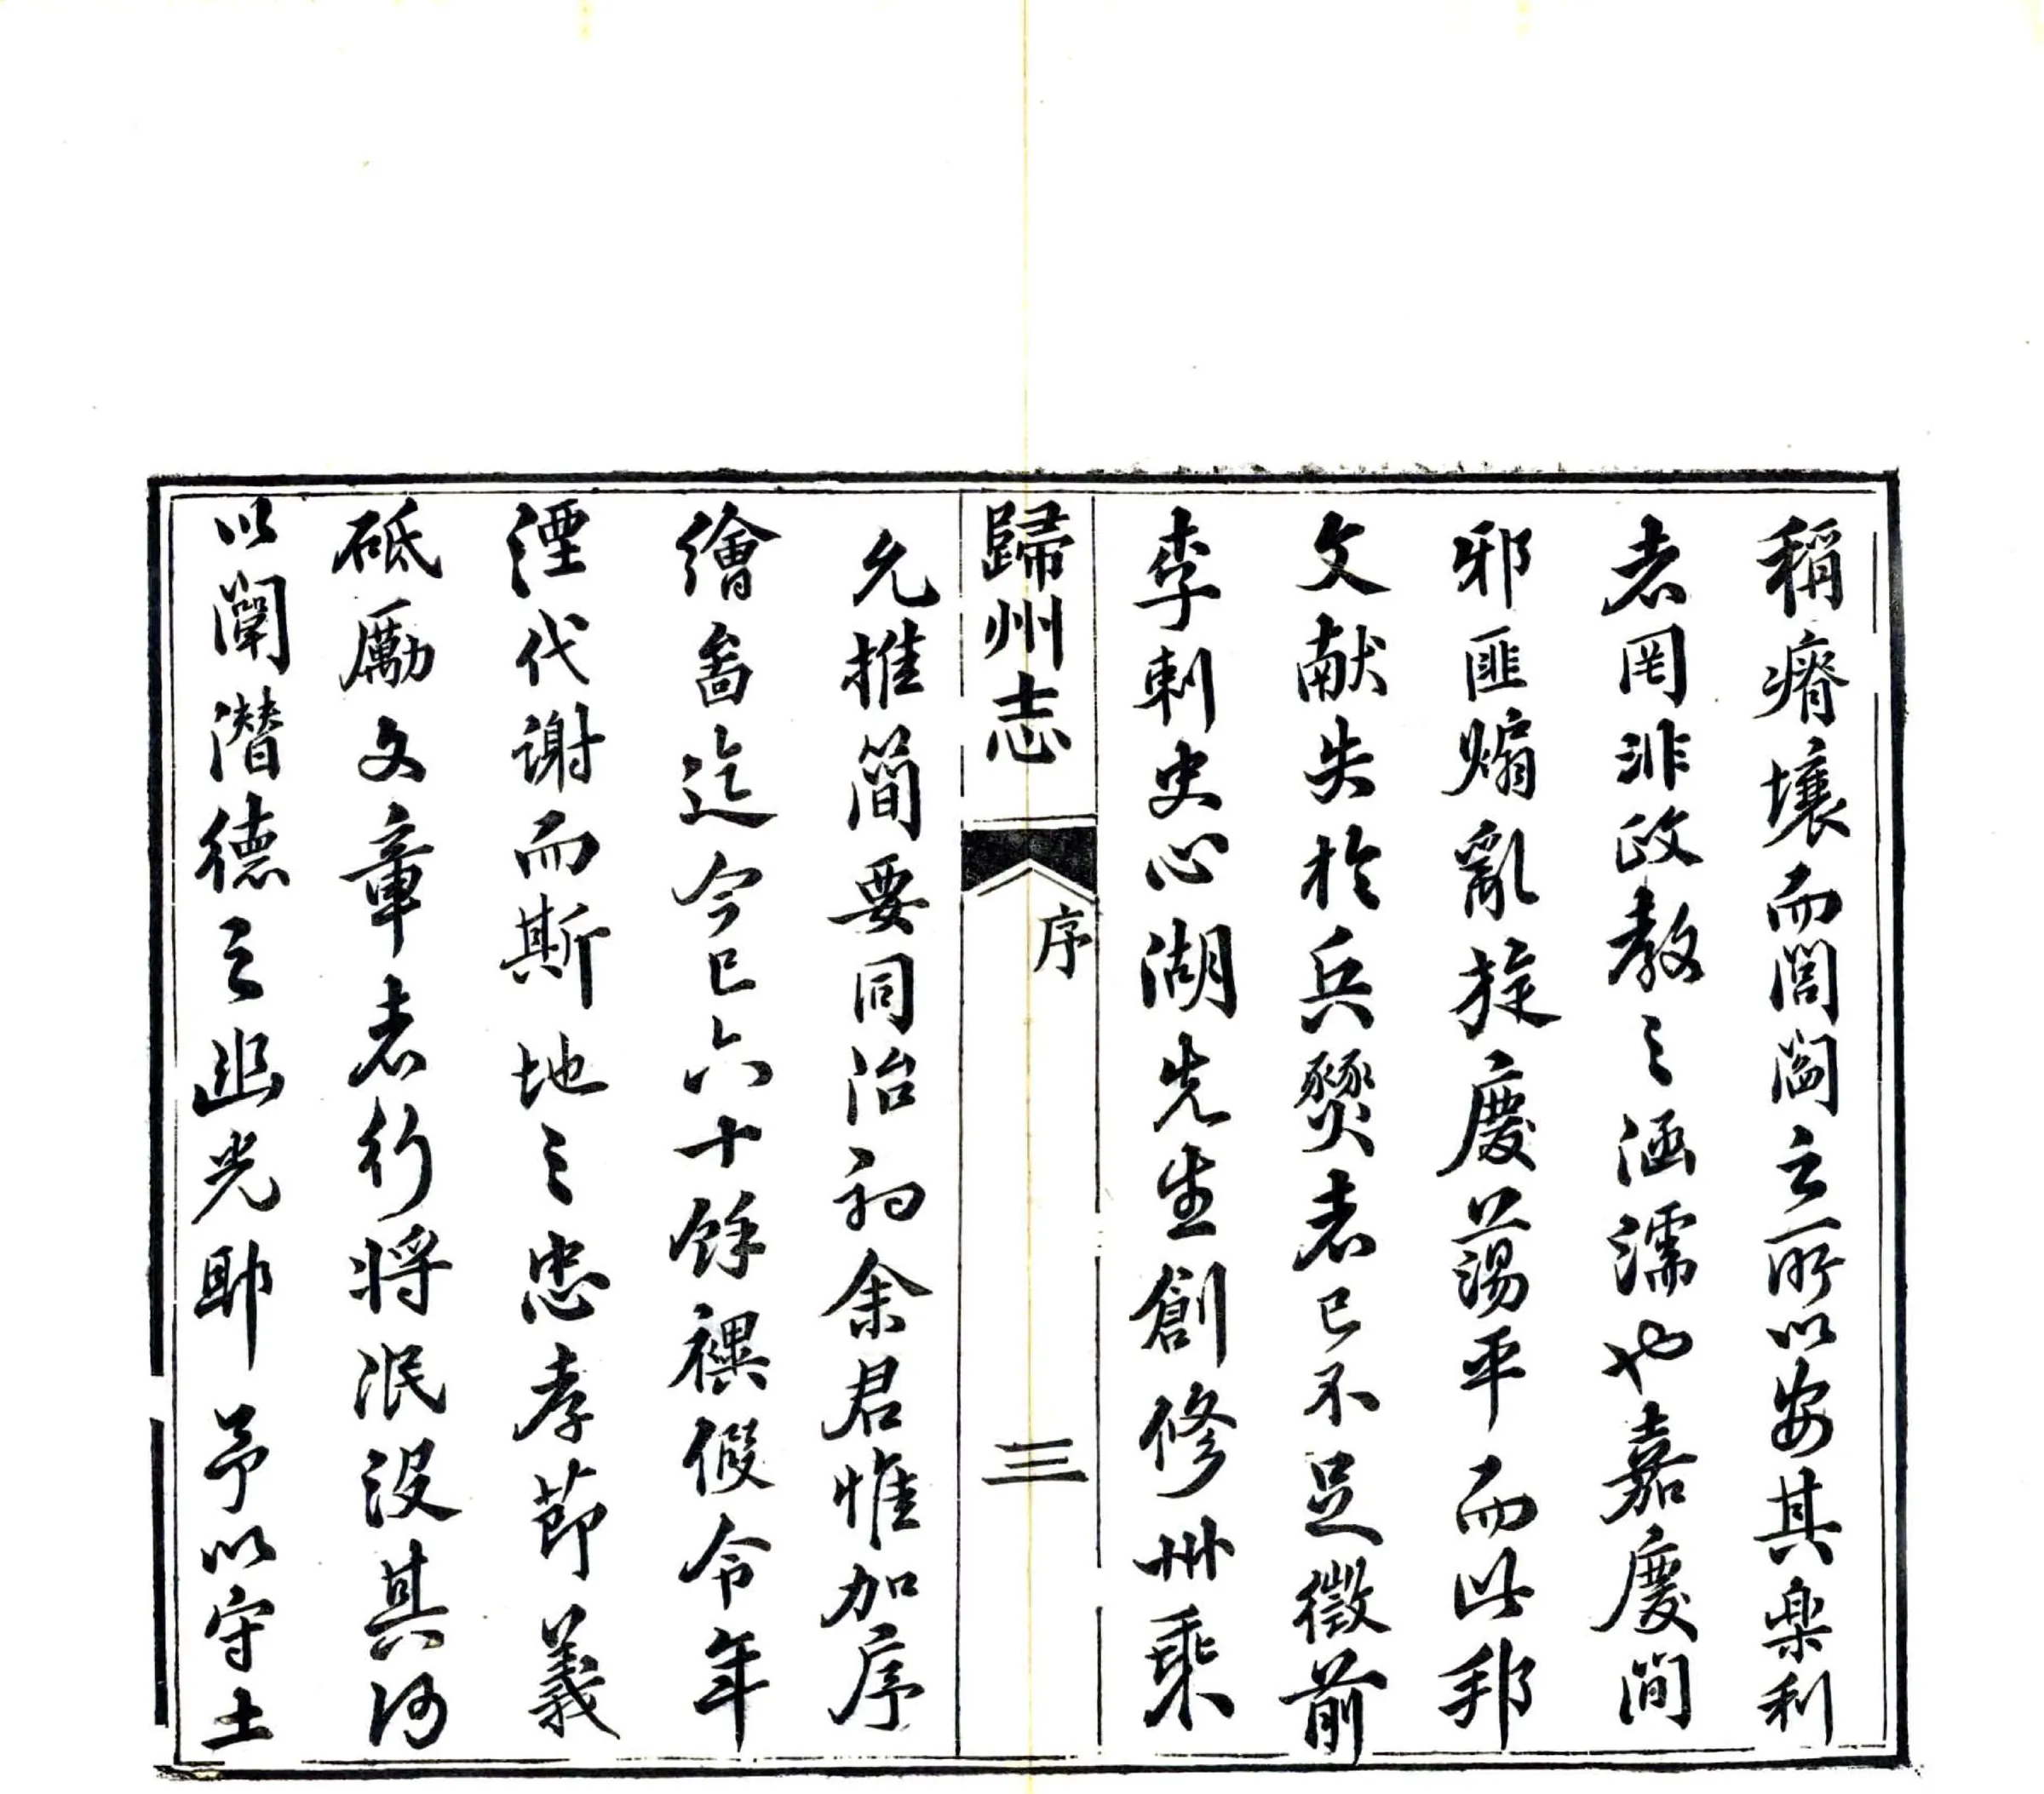 稱瘠壤而閭閻之所以安其樂利
者罔非政教之涵濡也嘉慶間
邪匪煽亂旋慶蕩平而此邦
文献失於兵燹者已不足徵前
李刺史心湖先生創修州乘
歸州志
序
三
允推簡要同治初余君惟加序
繪啚迄今已六十餘禩假令年
湮代謝而斯地之忠孝節義
砥厲文章者行將泯沒其何
以闡潛德之幽光耶予以守土